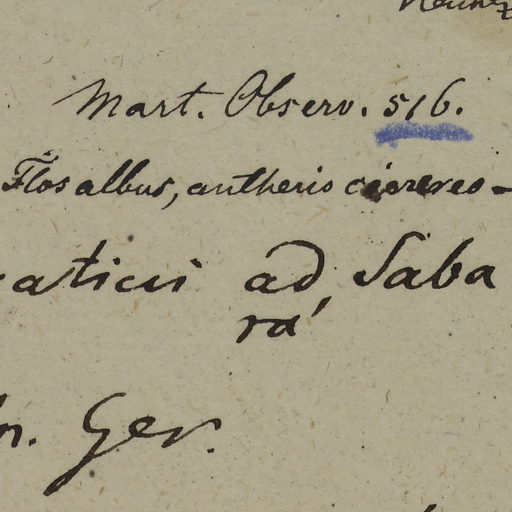 Mart. Observ. 516.
Flos albus, antheris cinereo-
aticis ad Saba
rá
Ger.